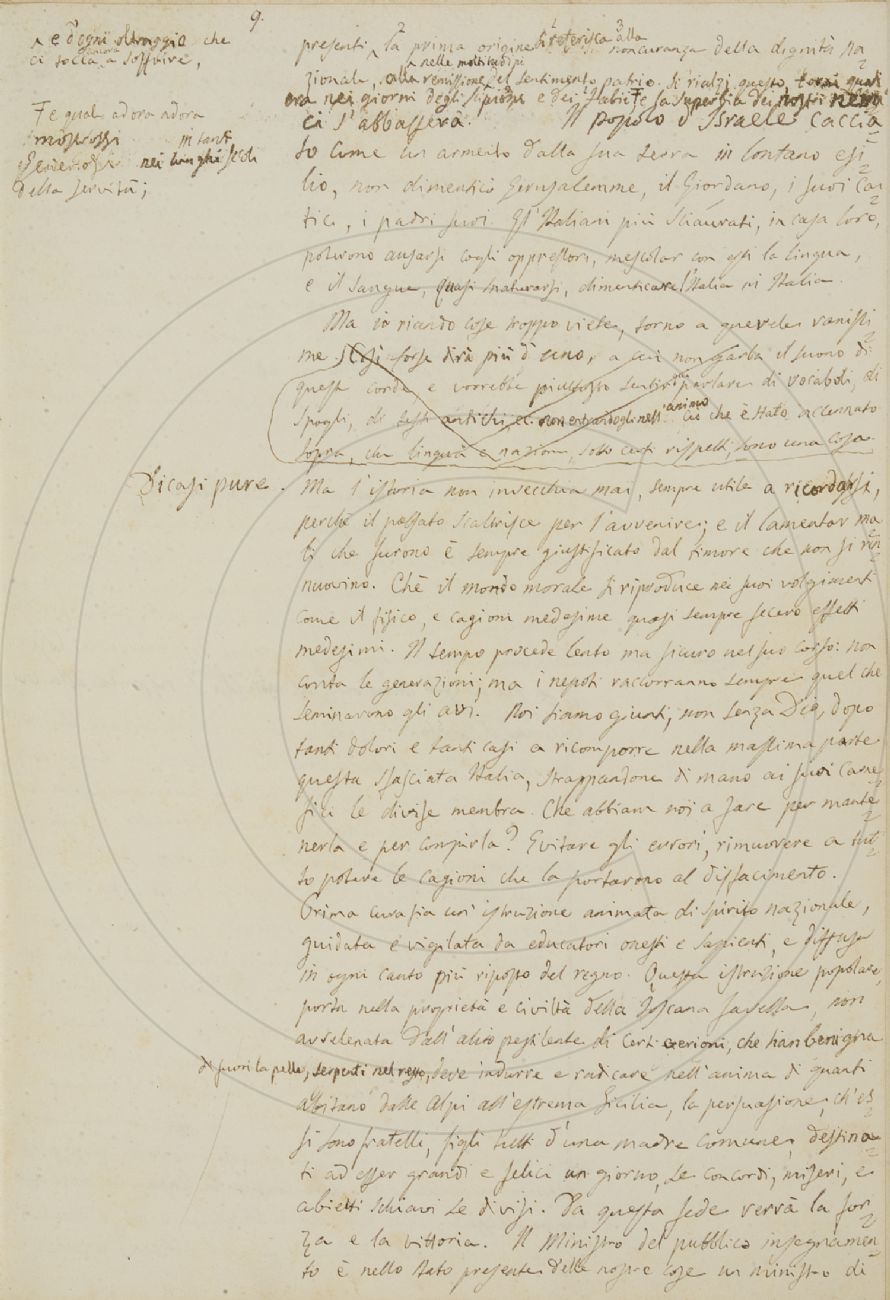 9.
^ e d'ogni oltraggio che
ci tocca ancora a soffrire,
F e qual adora adora
mostrossi in tanti
e nei lunghi secoli
della servitù;
presenti ^ la prima origine si riferisca alla noncuranza della dignità na=
zionale, alla remissione nelle moltitudini del sentimento patrio. Si rialzi questo, torni qual
era nei giorni degli Scipioni e dei F e la superbia dei nostri nemici
ci s'abbasserà. Il popolo d'Israele caccia=
to come un armento dalla sua terra in lontano esi=
lio, non dimenticò Gerusalemme, il Giordano, i suoi can=
tici, i padri suoi. Gl'Italiani più sciaurati, in casa loro,
poterono ausarsi cogli oppressori, mescolar con essi la lingua,
e il sangue, quasi snaturarsi, dimenticare l'Italia in Italia.
Ma io ricordo cose troppo viete, torno a querele vanissi=
me. Così forse dirà più d'uno, a cui non garba il suono di
queste corde e vorrebbe piuttosto sentir parlare di vocaboli, di
spogli, di testi antichi, ec. non entrandogli nell'animo ciò che è stato accennato
sopra, che lingua e nazione, sotto certi rispetti, sono una cosa.
Dicasi pure. Ma l'istoria non invecchia mai, sempre utile a ricordarsi,
perché il passato scaltrisce per l'avvenire; e il lamentar ma=
li che furono è sempre giustificato dal timore che non si rin=
nuovino. Ché il mondo morale si riproduce nei suoi volgimenti
come il fisico, e cagioni medesime quasi sempre fecero effetti
medesimi. Il tempo procede lento ma sicuro nel suo corso: non
conta le generazioni; ma i nepoti raccorranno sempre quel che
seminarono gli avi. Noi siamo giunti, non senza Dio, dopo
tanti dolori e tanti casi a ricomporre nella massima parte
questa sfasciata Italia, strappandone di mano ai suoi carne=
fici le divise membra. Che abbiam noi a fare per mante=
nerla e per compirla? Evitare gli errori, rimuovere a tut=
to potere le cagioni che la portarono al disfacimento.
Prima cura sia un'istruzione animata di spirito nazionale,
guidata e vigilata da educatori onesti e sapienti, e diffusa
in ogni canto più riposto del regno. Questa istruzione popolare,
porta nella proprietà e civiltà della Toscana favella, non
avvelenata dall'alito pestilente di certi Gerioni, che han benigna
di fuori la pelle, serpenti nel resto, deve indurre e radicare nell'anima di quanti
abitano dalle Alpi all'estrema Sicilia, la persuasione, ch'es=
si sono fratelli, figli tutti d'una madre comune, destina=
ti ad esser grandi e felici un giorno, se concordi, miseri, e
abietti schiavi se divisi. Da questa fede verrà la for=
za e la vittoria. Il Ministro del pubblico insegnamen=
to è nello stato presente delle nostre cose un ministro di